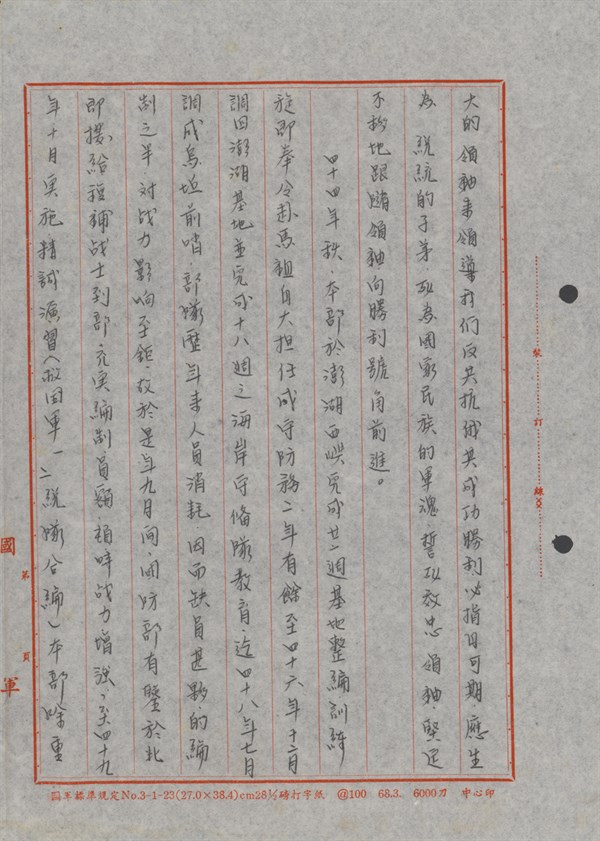 大的領袖來領導我们反共抗俄其成功勝利必指日可期應生
為 統的子弟 死為國家民族的軍魂 誓死效忠 領袖 堅定
不移地跟隨領袖向勝利號角前進。
四十四年秋 本部於澎湖西嶼完成廿二週基地整編訓練
旋即奉令赴馬祖 担任戍守防務 二年有餘至四十六年十二月
調回澎湖基地並完成十八週之海岸守備隊教育 迄四十八年七月
調戍烏坵前哨 部隊歷年來人員消耗 因而缺員甚夥 編
制之半 对战力影响至鉅 故於是年九月间 國防部有鑒於此
即撥給 補战士到部 充实編制員額 战力增強 至四十九
年十月实施精誠演習(救国軍一二 隊合編)本部除重
裝 打 線
國 軍
第 頁
國軍標準規定No.3-1-23(27.0×38.4)cm28½磅打字紙 @100 68.3. 6000刀 中心印